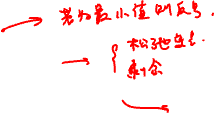 若为最小值则反号.
松弛变量.
剩余